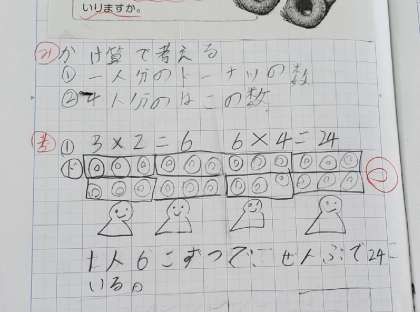 いりますか。
み かけ算で考える
① 一人分のドーナツの数
② 4人分のはこの数
考 ① 3×2=6 6×4=24
ト
1人6こずつでぜんぶで24こ
いる。